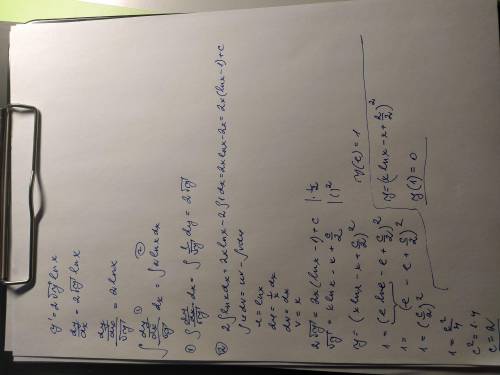 y' = 2√y ln x
dy/dx = 2√y ln x
(dy/dx)/√y = 2 ln x
∫ (dy/dx)/√y dx = ∫ 2 ln x dx
① ∫ (dy/dx)/√y dx = ∫ 1/√y dy = 2√y
② 2∫ ln x dx = 2x ln x - 2∫ 1 dx = 2x ln x - 2x = 2x(ln x - 1) + C
∫ u dv = uv - ∫ v du
u = ln x
du = 1/x dx
dv = dx
v = x
2√y = 2x(ln x - 1) + C | · 1/2
√y = x ln x - x + C/2 | ( )²
y = (x ln x - x + C/2)²
y(e) = 1
1 = (e ln e - e + C/2)²
1 = (e - e + C/2)²
1 = (C/2)²
1 = C²/4
C² = 1·4
C = 2
y = (x ln x - x + 2/2)²
y(1) = 0